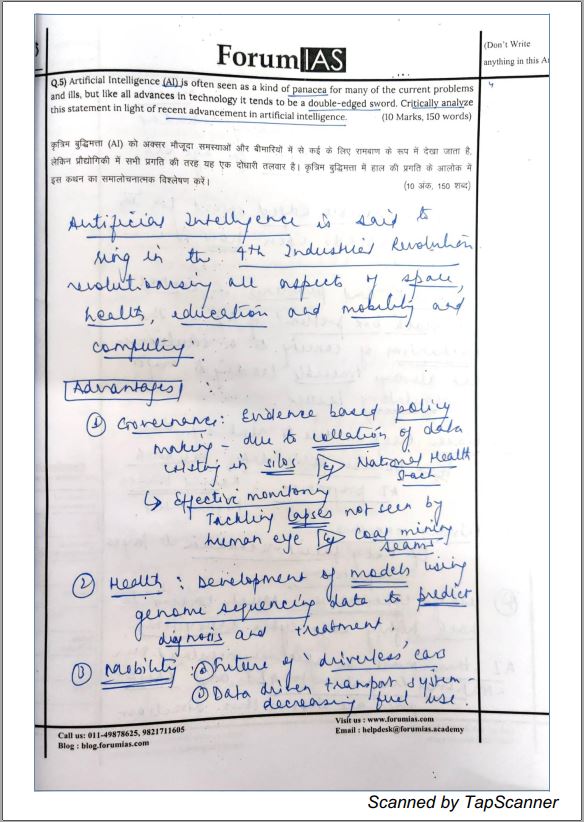 ForumIAS
(Don't Write
anything in this Ar
Q.5) Artificial Intelligence (AI) is often seen as a kind of panacea for many of the current problems
and ills, but like all advances in technology it tends to be a double-edged sword. Critically analyze
this statement in light of recent advancement in artificial intelligence. (10 Marks, 150 words)
कृत्रिम बुद्धिमत्ता (AI) को अक्सर मौजूदा समस्याओं और बीमारियों में से कई के लिए रामबाण के रूप में देखा जाता है,
लेकिन प्रौद्योगिकी में सभी प्रगति की तरह यह एक दोधारी तलवार है। कृत्रिम बुद्धिमत्ता में हाल की प्रगति के आलोक में
इस कथन का समालोचनात्मक विश्लेषण करें। (10 अंक, 150 शब्द)
Artificial Intelligence is said to
in the 4th Industrial Revolution
revolutionising all aspects of space,
health, education and mobility and
computing.
Advantages
① Governance: Evidence based policy
making - due to collation of data
existing in silos eg National Health
Stack
↳ Effective monitoring
Tackling lapses not seen by
human eye eg Coal mining
seams
② Health: Development of models using
genome sequencing data to predict
diagnosis and treatment.
③ Mobility: Future of 'driverless' cars
Data driven transport system -
decreasing fuel use.
Call us: 011-49878625, 9821711605
Blog : blog.forumias.com
Visit us : www.forumias.com
Email : helpdesk@forumias.academy
Scanned by TapScanner